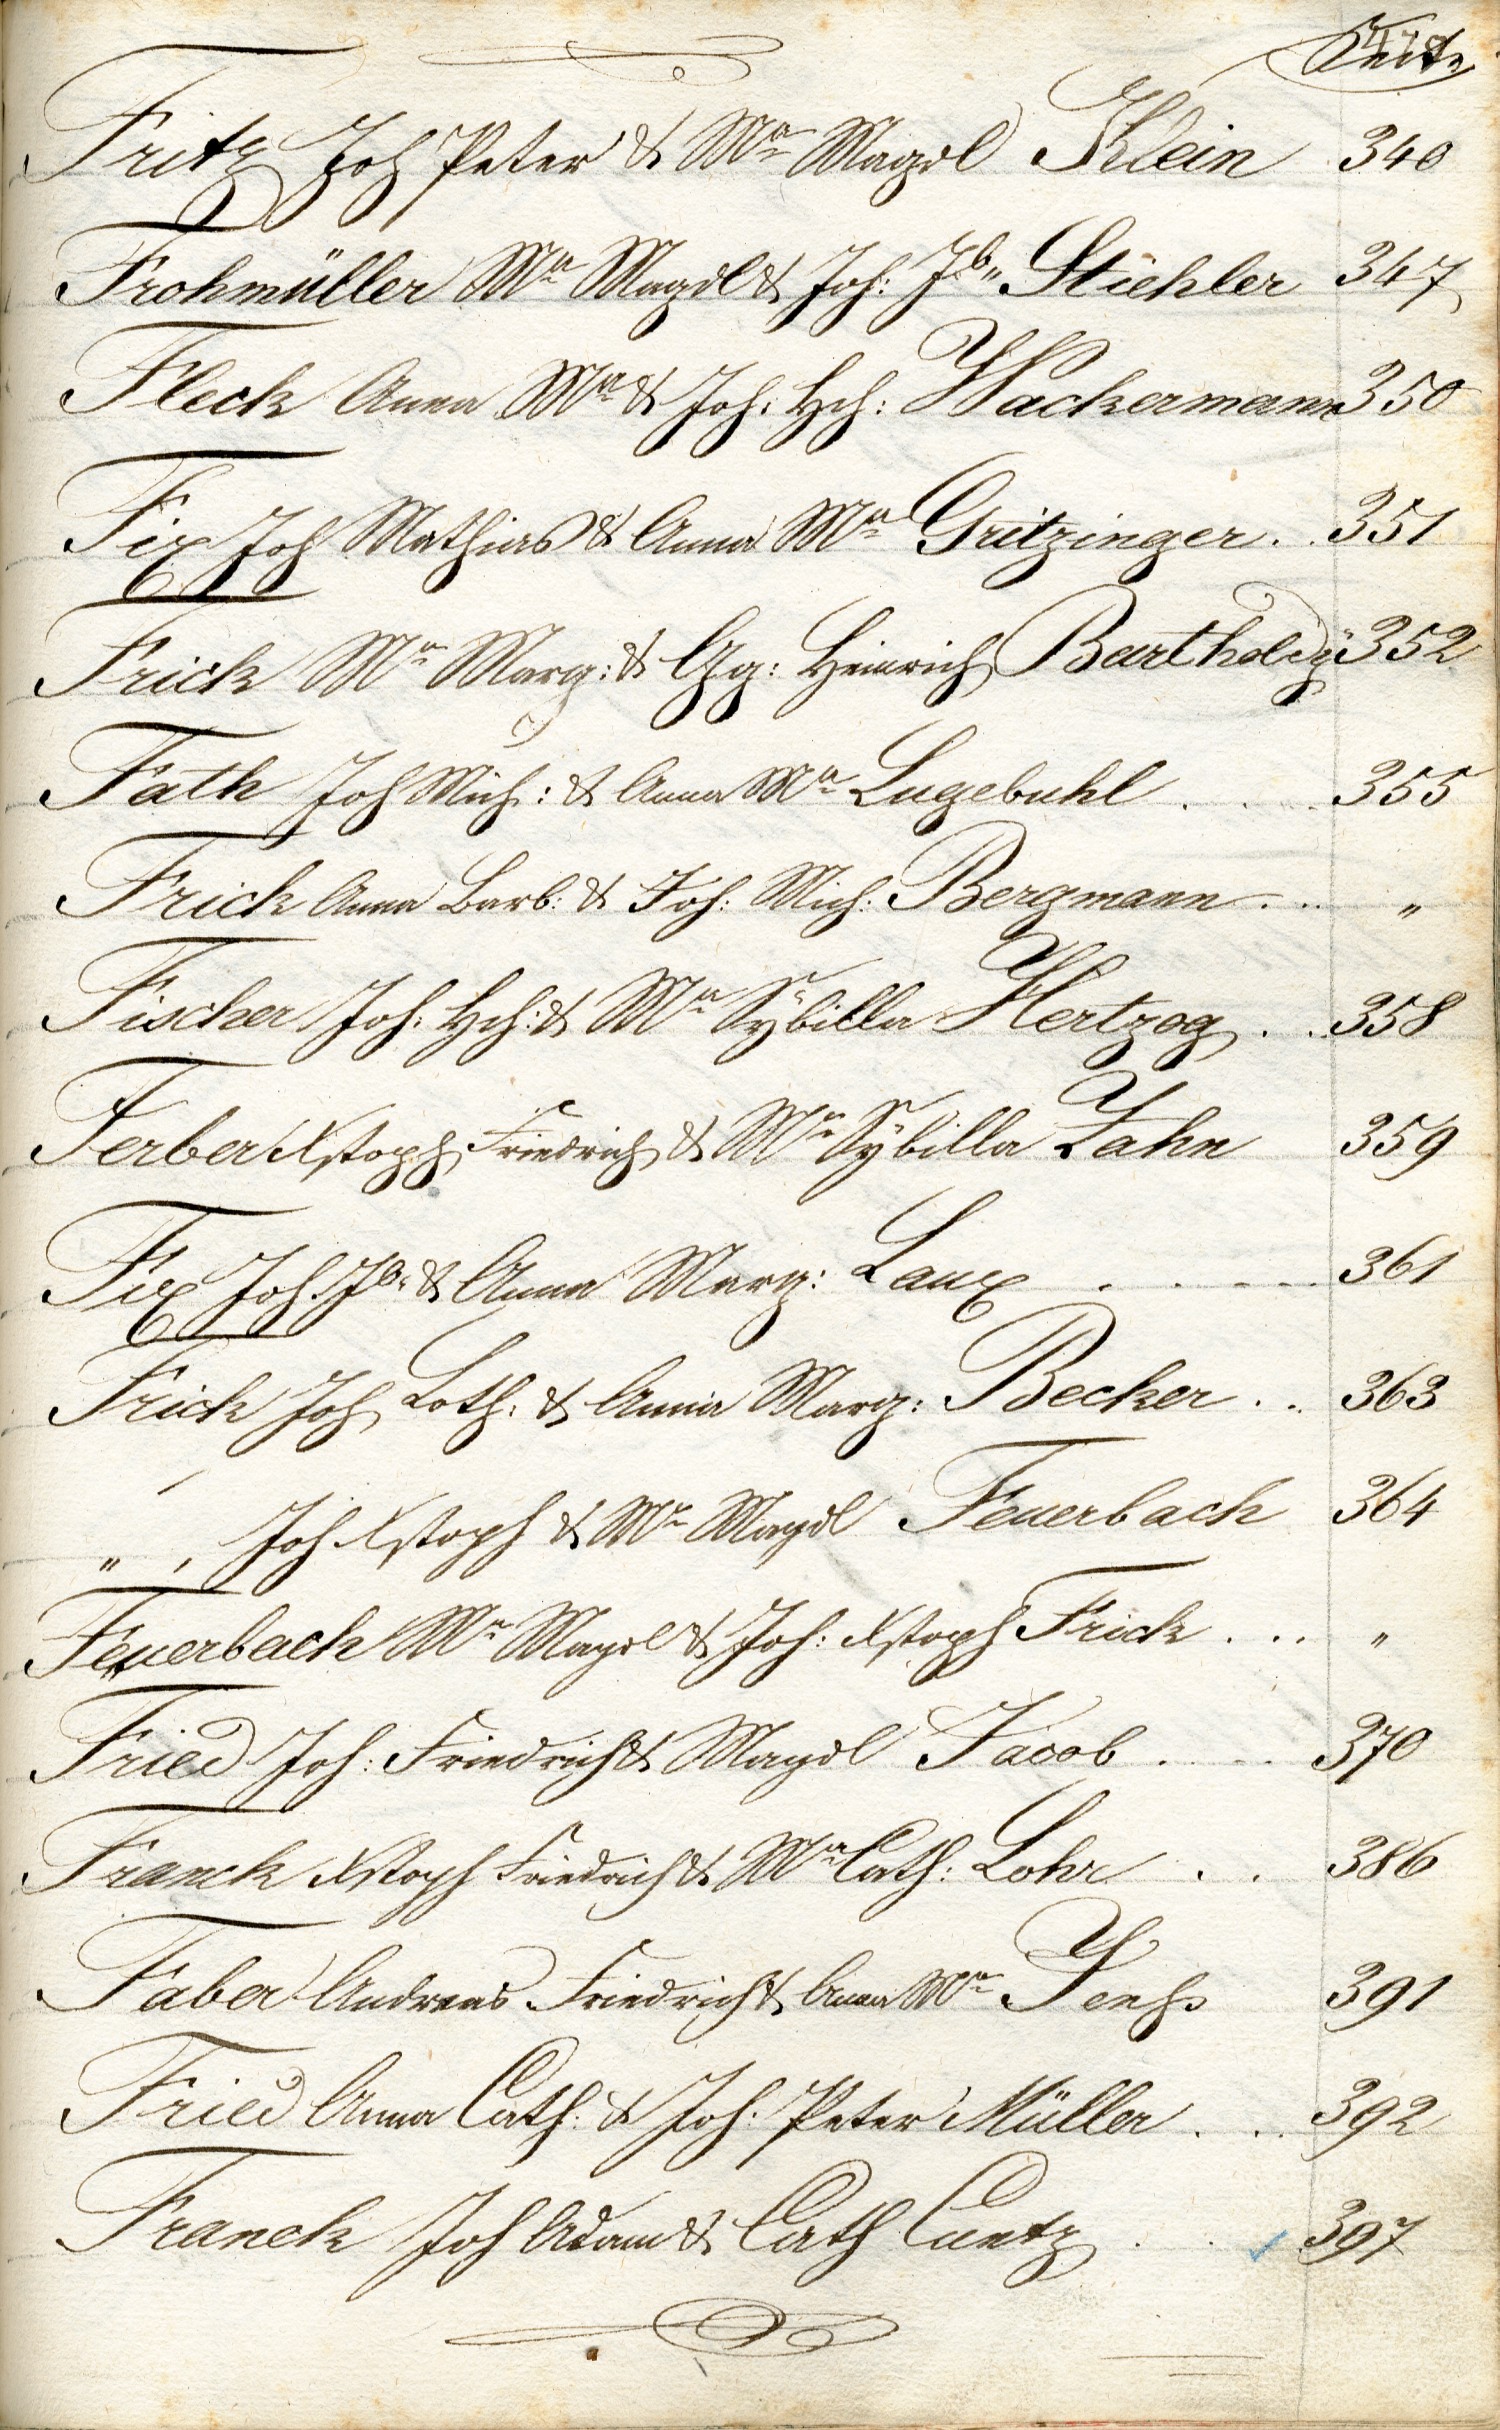 Seite
Fritz Joh Peter & Mᵃ Magdl Klein 340
Frohmüller Mᵃ Magdl & Joh: Jb„ Stiehler 347
Fleck Anna Mᵃ & Joh: Hch: Wackermann 350
Fix Joh Mathias & Anna Mᵃ Gritzinger . . 351
Frick Mᵃ Marg: & Gg: Heinrich Bartholdÿ 352
Fath Joh Mich: & Anna Mᵃ Lugebuhl . . . 355
Frick Anna Barb: & Joh: Mich: Bergmann . . . „
Fischer Joh: Hch: & Mᵃ Sÿbilla Hertzog . . 358
Ferber Xstoph Friedrich & Mᵃ Sÿbilla Zahn 359
Fix Joh. Jb. & Anna Marg: Laux . . . . . 361
Frick Joh Loth. & Anna Marg: Becker . . 363
„ , Joh Xstoph & Mᵃ Magdl Feuerbach 364
Feuerbach Mᵃ Magdl & Joh: Xstoph Frick . . . „
Fried Joh: Friedrich & Magdl Jacob . . . . 370
Franck Xstoph Friedrich & Mᵃ Cath: Lohr . . 386
Faber Andreas Friedrich & Anna Mᵃ 391
Fried Anna Cath: & Joh: Peter Müller . . . 392
Franck Joh Adam & Cath Cuntz . . 397